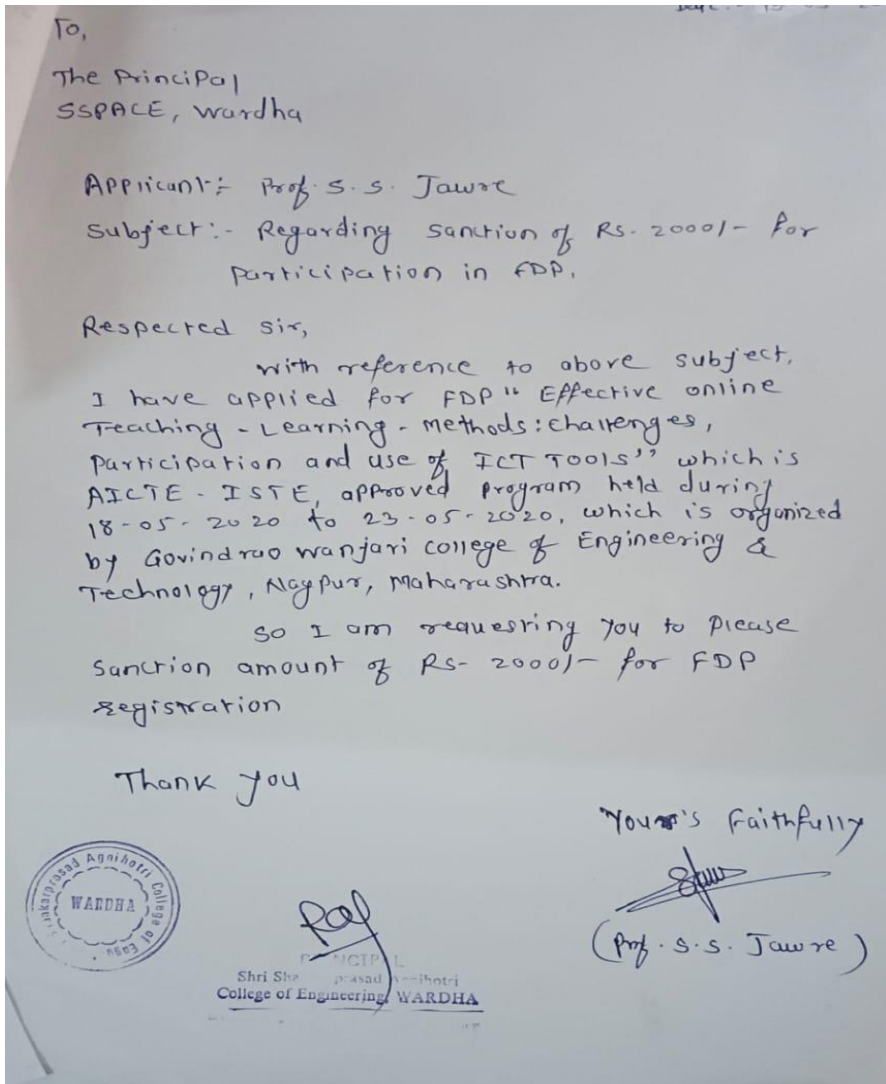 To,
The Principal
SSPACE, Wardha
Applicant:- Prof. S. S. Jawre
Subject:- Regarding Sanction of Rs. 2000/- for
Participation in FDP.
Respected Sir,
With reference to above subject,
I have applied for FDP " Effective online
Teaching - Learning - Methods: challenges,
Participation and use of ICT TOOLS" which is
AICTE - ISTE, approved program held during
18-05-2020 to 23-05-2020, which is organized
by Govindrao Wanjari college of Engineering &
Technology, Nagpur, Maharashtra.
So I am requesting you to please
Sanction amount of Rs- 2000/- for FDP
registration
Thank you
Your's Faithfully
(Prof. S. S. Jawre)
Agnihotri College of Engg.
WARDHA
PRINCIPAL
Shri
College of Engineering, WARDHA